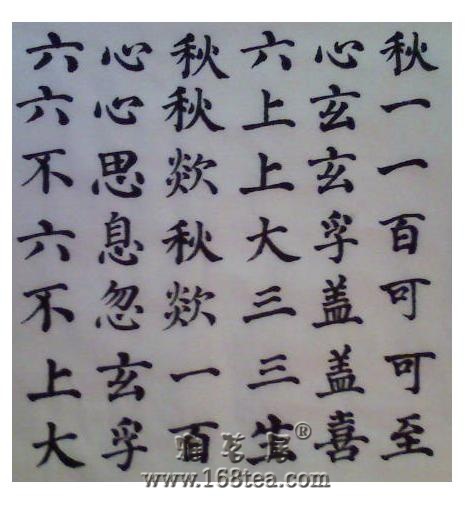 秋一一百可可至
心玄玄孚盖盖喜
六上上大三三生
秋秋欻秋欻一百
心心思息忽玄孚
六六不六不上大
®
www.168tea.com